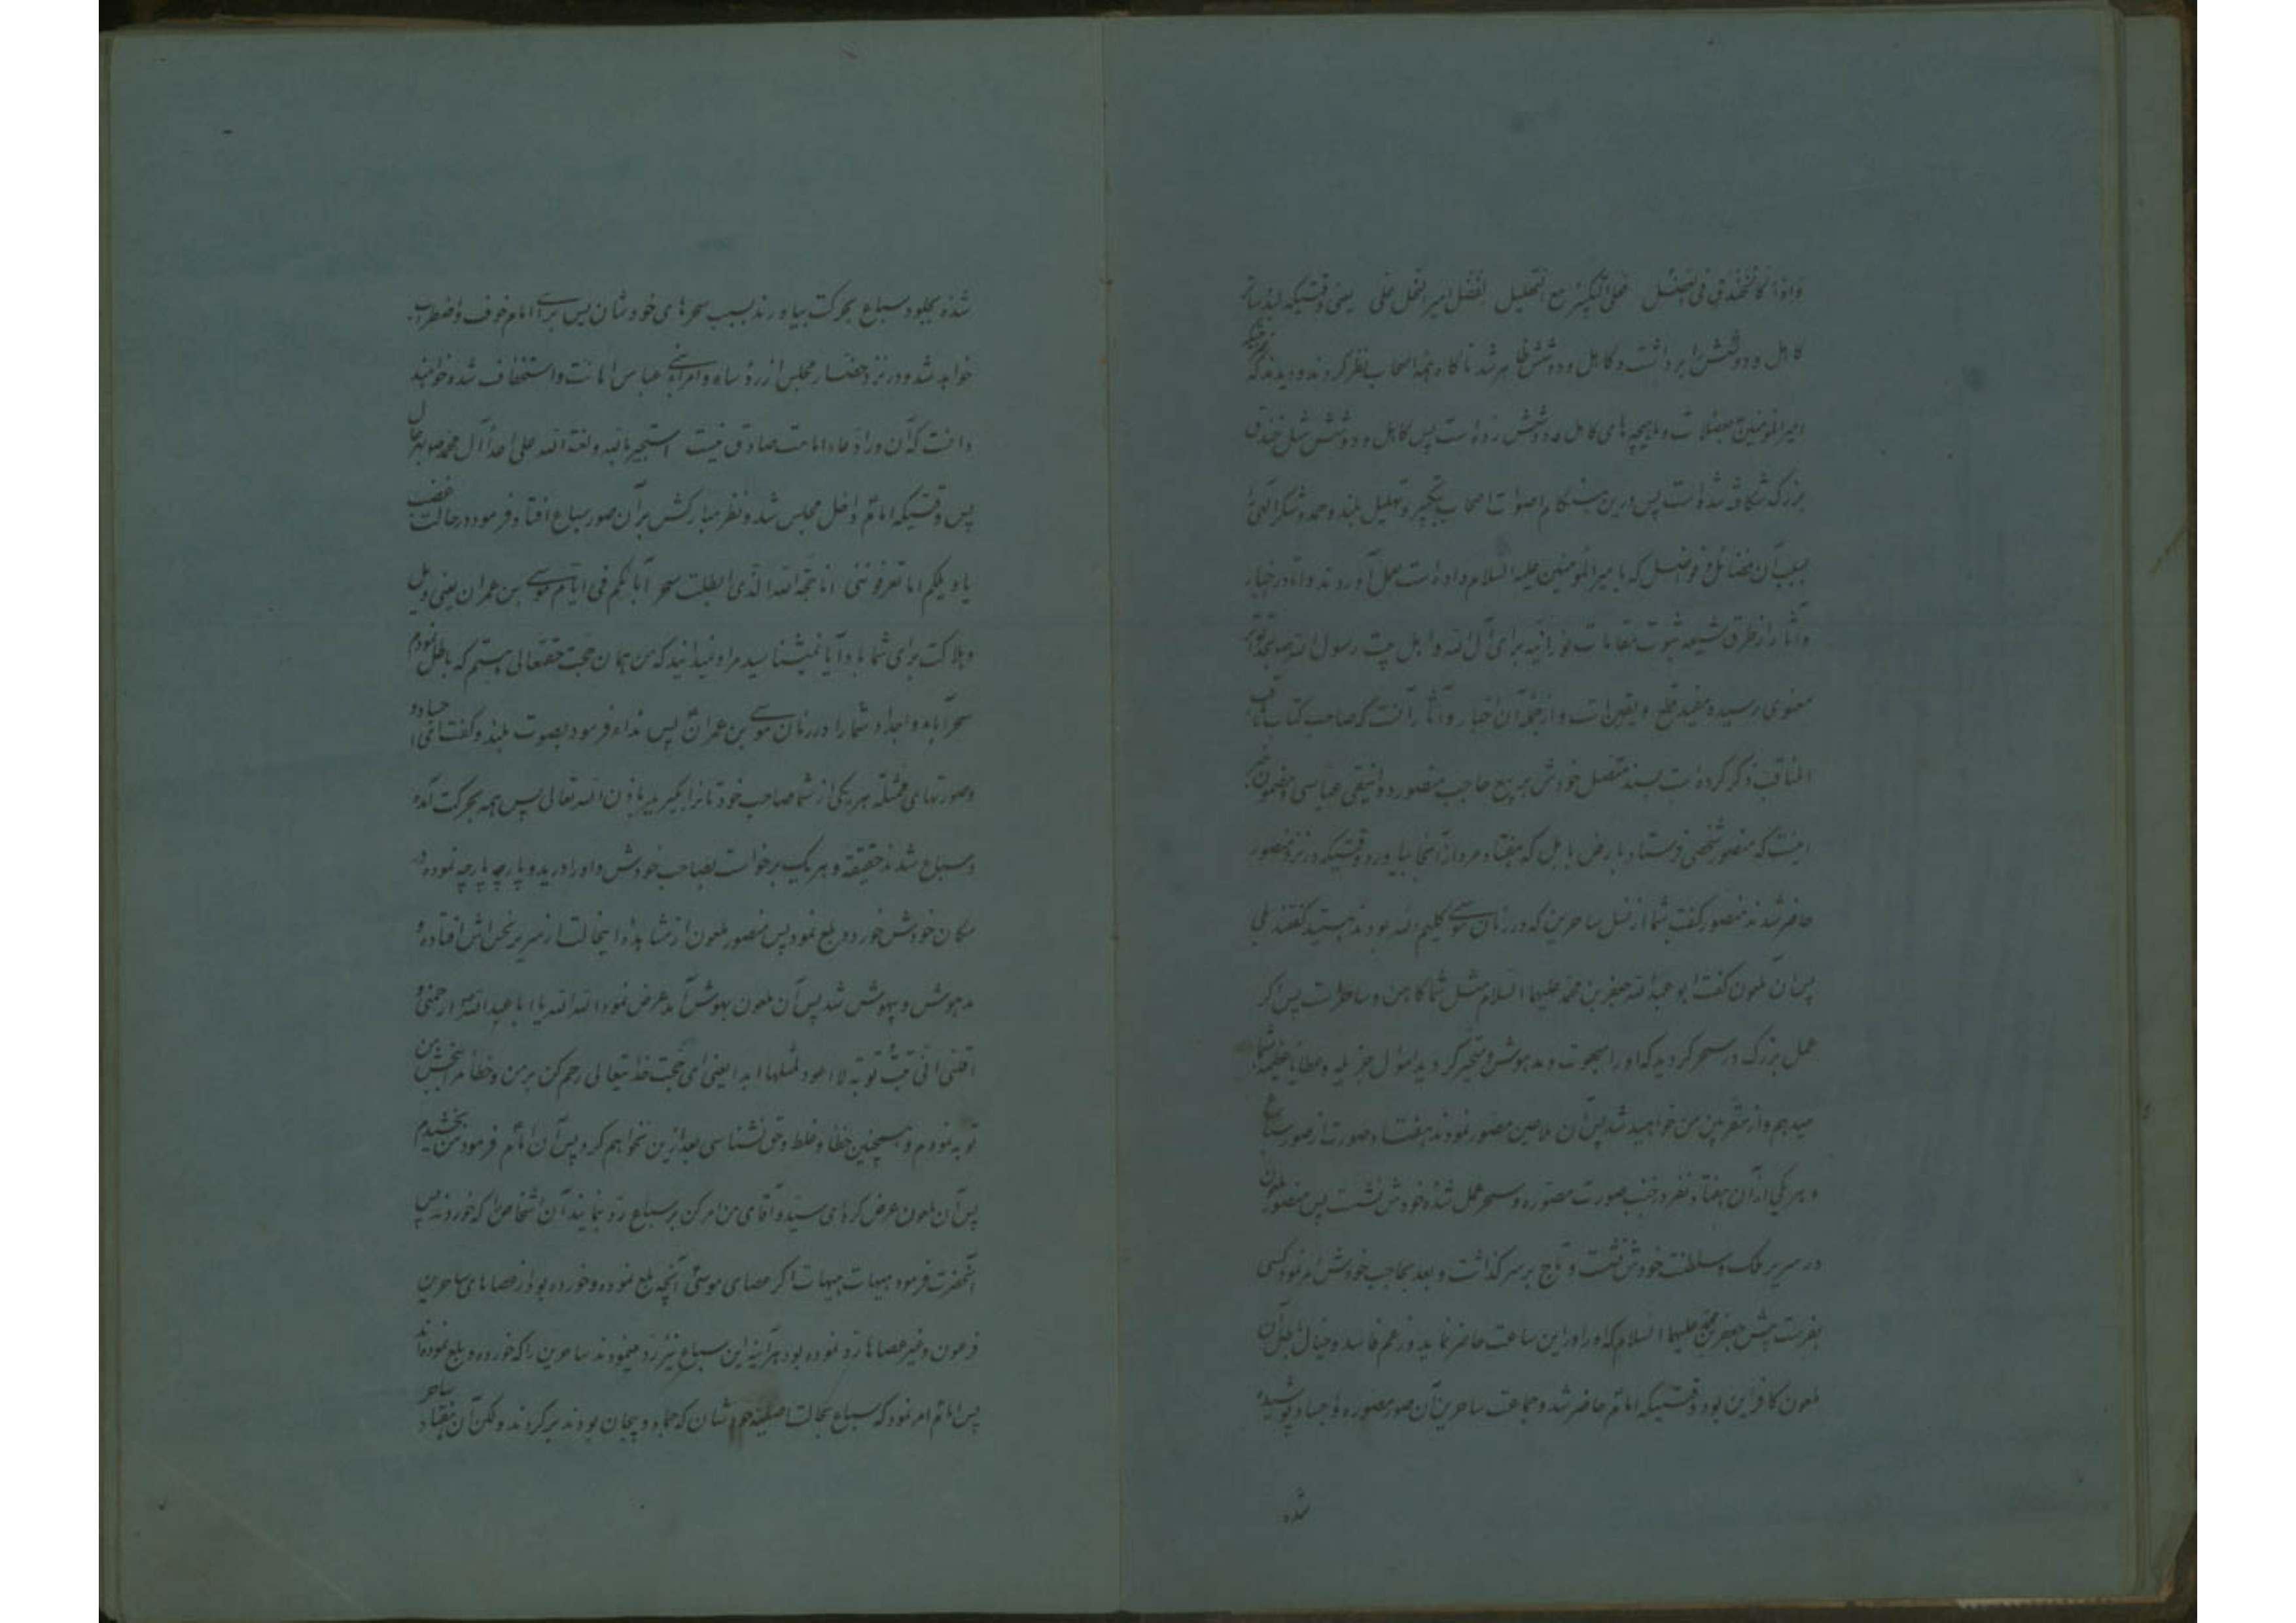 کاهل و دوشش را برداشت و کاهل و دوشش ظاهر شد ناگاه همه اصحاب نظر کردند و دیدند که
امیر المؤمنین عضلات و ماهیچه های کاهل و دوشش زده است پس کاهل و دوشش مثل خندق
بزرگ شکافته شده است پس درین هنگام اصوات اصحاب بتکبیر و تهلیل بلند و حمد و شکر الهی را
بسبب آن فضائل و فواضل که بامیر المؤمنین علیه السلام داده است بعمل آوردند و اما در اخبار
و آثار از طرق شیعه ثبوت مقامات نورانیه برای آل الله و اهل بیت رسول الله ص بحد تواتر
معنوی رسیده مفید قطع و یقین است و از جمله آن اخبار و آثار آنست که صاحب کتاب ثاقب
المناقب ذکر کرده است بسند متصل خودش بربیع حاجب منصور دوانیقی عباسی و مضمونش
اینست که منصور شخصی فرستاد بارض بابل که هفتاد مرد از آنجا بیاورد و وقتیکه در نزد منصور
حاضر شدند منصور گفت شما از نسل ساحرین که در زمان موسی کلیم الله بودند هستید گفتند بلی
پس آن ملعون گفت ابو عبد الله جعفر بن محمد علیهما السلام مثل شما کاهن و ساحر است پس اگر
عمل بزرگ در سحر کردید که او را مبهوت و مدهوش و متحیر کردید اموال جزیله و عطایا عظیمه بشما
میدهم و از مقربین من خواهید شد پس آن ملاعین مصور نمودند هفتاد صورت از صور سباع
و هر یکی از آن هفتاد نفر در جنب صورت مصوره و سحر عمل شده خودش نشست پس منصور ملعون
در سریر ملک و سلطنت خودش نشست و تاج بر سر گذاشت و بعد بحاجب خودش امر نمود کسی
بفرست پیش جعفر بن محمد علیهما السلام که او را در این ساعت حاضر نماید و زعم فاسد و خیال باطل آن
ملعون کافر این بود وقتیکه امام حاضر شد و جماعت ساحرین آن صور مصوره و اجساد پوشیده
شده
شده بجلود سباع بحرکت بیاورند بسبب سحرهای خودشان پس برای امام خوف و اضطراب
خواهد شد و در نزد حضار مجلس از رؤساء و امراء بنی عباس اهانت و استخفاف شده خواهند
دانست که آن در ادعاء امامت صادق نیست استجیر بالله و لعنة الله علی اعداء آل محمد ص بهر حال
پس وقتیکه امام داخل مجلس شده نظر مبارکش بر آن صور سباع افتاد فرمود در حالت غضب
یا ویلکم اما تعرفوننی انا حجة الله الذی ابطلت سحر آبائکم فی ایام موسی بن عمران یعنی ویل
و هلاکت برای شما باد آیا نمیشناسید مرا و نمیدانید که من همان حجت حقتعالی هستم که باطل نمودم
سحر آباء و اجداد شما را در زمان موسی بن عمران پس نداء فرمود بصوت بلند و گفت ای اجساد و
و صورتهای ممثله هر یکی از شما صاحب خودتانرا بگیرید باذن الله تعالی پس همه بحرکت آمده
و سباع شدند حقیقة و هر یک برخواست بصاحب خودش و او را درید و پارچه پارچه نموده در
مکان خودش خورد و بلع نمود پس منصور ملعون از مشاهده اینحالت از سریر نحس اش افتاده و
مدهوش و بیهوش شد پس آن ملعون بهوش آمد عرض نمود الله الله یا ابا عبد الله ارحمنی و
اقلنی انی تبت توبه لا اعود لمثلها ابدا یعنی ای حجت خدایتعالی رحم کن بر من و خطأ مرا ببخش من
توبه نمودم و همچنین خطا و غلط و حق نشناسی بعد ازین نخواهم کرد پس آن امام فرمود من بخشیدم
پس آن ملعون عرض کرد ای سید و آقای من امر کن بر سباع رد نمایند آن اشخاص را که خوردند پس
آنحضرت فرمود هیهات هیهات اگر عصای موسی آنچه بلع نموده و خورده بود از عصاهای ساحرین
فرعون و غیر عصاها رد نموده بود هرآینه این سباع نیز رد مینمودند ساحرین را که خورده و بلع نموده‌اند
پس امام امر نمود که سباع بحالت اصلیه خودشان که جماد و بیجان بودند برگردند ولکن آن هفتاد ساحر